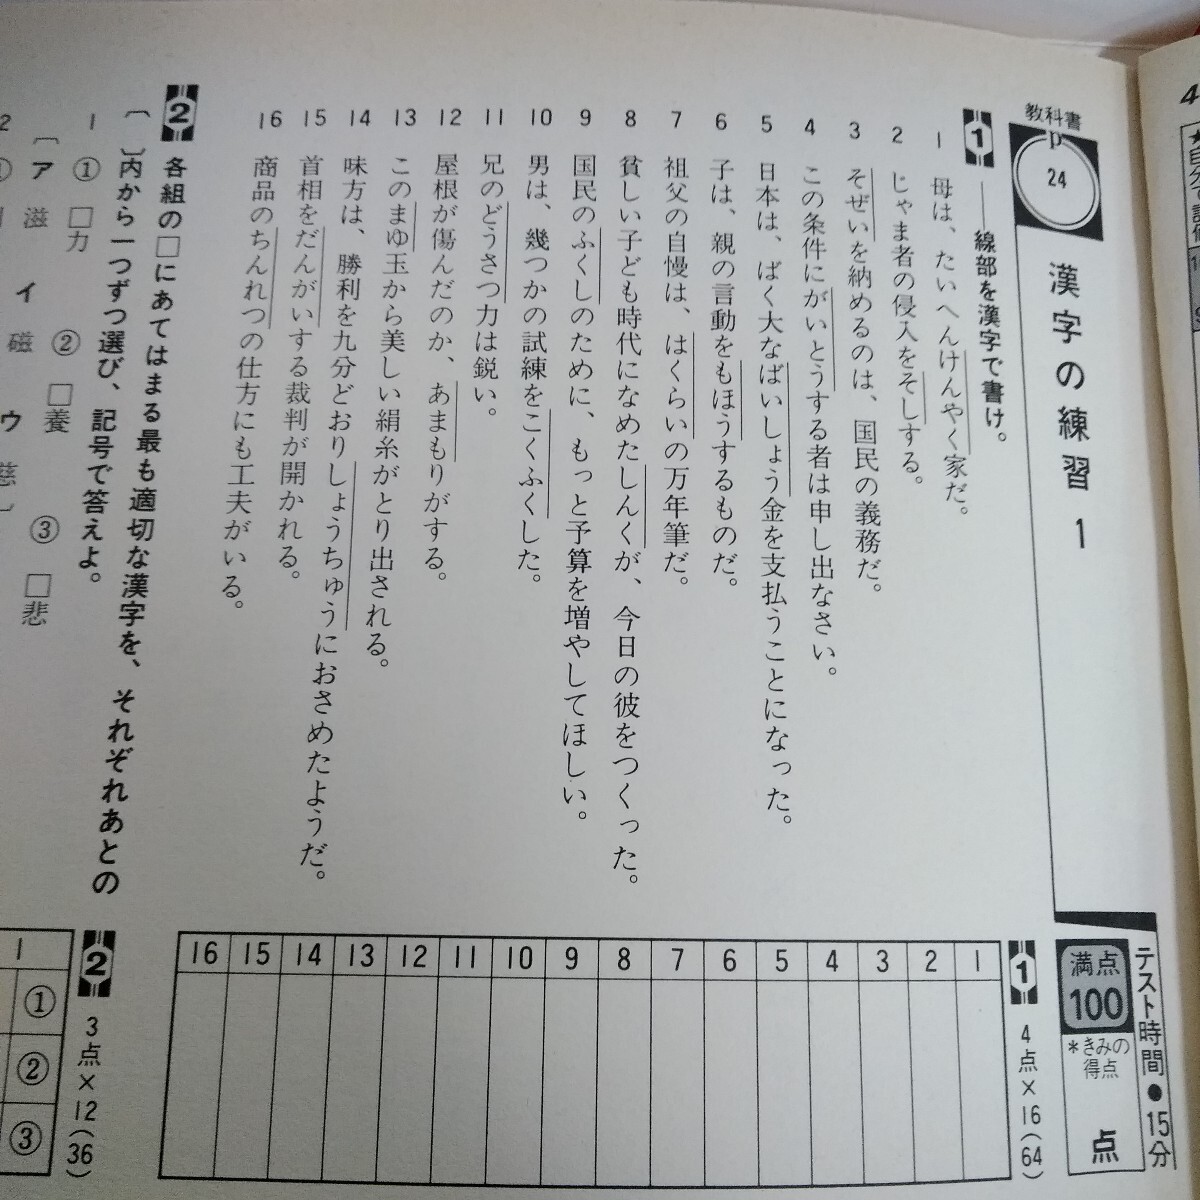 教科書
P
24
漢字の練習 1
テスト時間●15分
満点
100
*きみの
得点
点
1 ――線部を漢字で書け。
1 母は、たいへんけんやく家だ。
2 じゃま者の侵入をそしする。
3 そぜいを納めるのは、国民の義務だ。
4 この条件にがいとうする者は申し出なさい。
5 日本は、ばく大なばいしょう金を支払うことになった。
6 子は、親の言動をもほうするものだ。
7 祖父の自慢は、はくらいの万年筆だ。
8 貧しい子ども時代になめたしんくが、今日の彼をつくった。
9 国民のふくしのために、もっと予算を増やしてほしい。
10 男は、幾つかの試練をこくふくした。
11 兄のどうさつ力は鋭い。
12 屋根が傷んだのか、あまもりがする。
13 このまゆ玉から美しい絹糸がとり出される。
14 味方は、勝利を九分どおりしょうちゅうにおさめたようだ。
15 首相をだんがいする裁判が開かれる。
16 商品のちんれつの仕方にも工夫がいる。
1
4点×16(64)
1
2
3
4
5
6
7
8
9
10
11
12
13
14
15
16
2 各組の□にあてはまる最も適切な漢字を、それぞれあとの
〔 〕内から一つずつ選び、記号で答えよ。
1 ①□力 ②□養 ③□悲
〔ア 滋 イ 磁 ウ 慈〕
2 ①
2
3点×12(36)
1
①
②
③
4